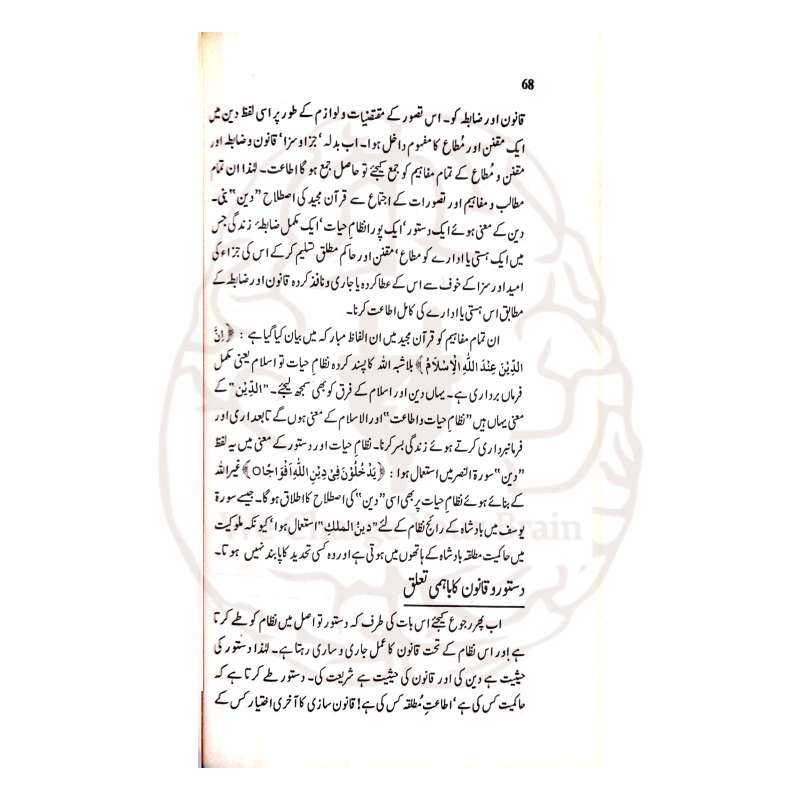 68
قانون اور ضابطہ کو۔ اس تصور کے مقتضیات و لوازم کے طور پر اسی لفظ دین میں
ایک مقنن اور مُطاع کا مفہوم داخل ہوا۔ اب بدلہ‘ جزا و سزا‘ قانون و ضابطہ اور
مقنن و مُطاع کے تمام مفاہیم کو جمع کیجئے تو حاصل جمع ہو گا اطاعت۔ لہٰذا ان تمام
مطالب و مفاہیم اور تصورات کے اجتماع سے قرآن مجید کی اصطلاح ”دین“ بنی۔
دین کے معنی ہوئے ایک دستور‘ ایک پورا نظامِ حیات‘ ایک مکمل ضابطۂ زندگی جس
میں ایک ہستی یا ادارے کو مطاع‘ مقنن اور حاکم مطلق تسلیم کر کے اس کی جزاء کی
امید اور سزا کے خوف سے اس کے عطا کردہ یا جاری و نافذ کردہ قانون اور ضابطہ کے
مطابق اس ہستی یا ادارے کی کامل اطاعت کرنا۔
ان تمام مفاہیم کو قرآن مجید میں ان الفاظ مبارکہ میں بیان کیا گیا ہے : ﴿اِنَّ
الدِّیْنَ عِنْدَ اللّٰہِ الْاِسْلَامُ﴾ بلاشبہ اللہ کا پسند کردہ نظامِ حیات تو اسلام یعنی مکمل
فرماں برداری ہے۔ یہاں دین اور اسلام کے فرق کو بھی سمجھ لیجئے۔ ”الدِّیْنَ“ کے
معنی یہاں ہیں ”نظامِ حیات و اطاعت“ اور الاسلام کے معنی ہوں گے تابعداری اور
فرمانبرداری کرتے ہوئے زندگی بسر کرنا۔ نظامِ حیات اور دستور کے معنی میں یہ لفظ
”دین“ سورۃ النصر میں استعمال ہوا : ﴿یَدْخُلُوْنَ فِیْ دِیْنِ اللّٰہِ اَفْوَاجًا○﴾ غیر اللہ
کے بنائے ہوئے نظامِ حیات پر بھی اسی ”دین“ کی اصطلاح کا اطلاق ہو گا۔ جیسے سورۃ
یوسف میں بادشاہ کے رائج نظام کے لئے ”دِینُ المَلِکِ“ استعمال ہوا‘ کیونکہ ملوکیت
میں حاکمیت مطلقہ بادشاہ کے ہاتھوں میں ہوتی ہے اور وہ کسی تحدید کا پابند نہیں ہوتا۔
دستور و قانون کا باہمی تعلق
اب پھر رجوع کیجئے اس بات کی طرف کہ دستور تو اصل میں نظام کو طے کرتا
ہے اور اس نظام کے تحت قانون کا عمل جاری و ساری رہتا ہے۔ لہٰذا دستور کی
حیثیت ہے دین کی اور قانون کی حیثیت ہے شریعت کی۔ دستور طے کرتا ہے کہ
حاکمیت کس کی ہے‘ اطاعتِ مُطلقہ کس کی ہے! قانون سازی کا آخری اختیار کس کے